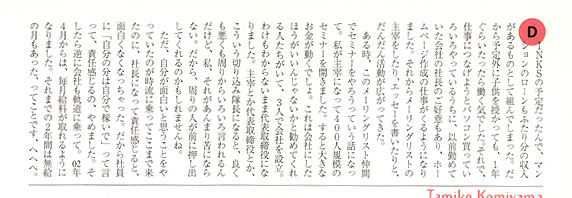 D
INKSの予定だったんで、マン
ションのローンもふたり分の収入
があるものとして組んでました。だ
から予定外に子供を授かっても、1年
ぐらいたったら働く気でした。それで、
仕事につなげようとパソコン買ってい
ろいろやっているうちに、以前勤めて
いた会社の社長のご好意もあり、ホー
ムページ作成の仕事がくるようになり
ました。それからメーリングリストの
主宰をしたり、エッセーを書いたりと、
だんだん活動が広がってきた。
ある時、このメーリングリスト仲間
でセミナーをやろうっていう話になっ
て。私が主宰になって400人規模の
セミナーを開きました。すると大きな
お金が動くでしょ。これは会社にした
ほうがいいんじゃないかと勧めてくれ
る人たちがいて、3人で会社を設立。
わけもわからないまま代表取締役にな
りました。主宰とか代表取締役とか、
こういう切り込み隊長になると、良く
も悪くも周りからいろいろ言われるん
だけど、私、それがあんまり苦になら
ない。だから、周りの人が前に押し出
してくれるのかもしれませんね。
ただ、自分が面白いと思うことをや
っていたのが時流に乗ってここまで来
たのに、社長になって責任感じると、
面白くなくなっちゃった。だから社員
に「自分の分は自分で稼いで」って言
って、責任感じるの、やめました。そ
したら逆に会社も軌道に乗って。02年
4月からは、毎月給料が取れるように
なりました。それまでの2年間は無給
の月もあった、ってことです、へへへ。
Tamiko Komiyama